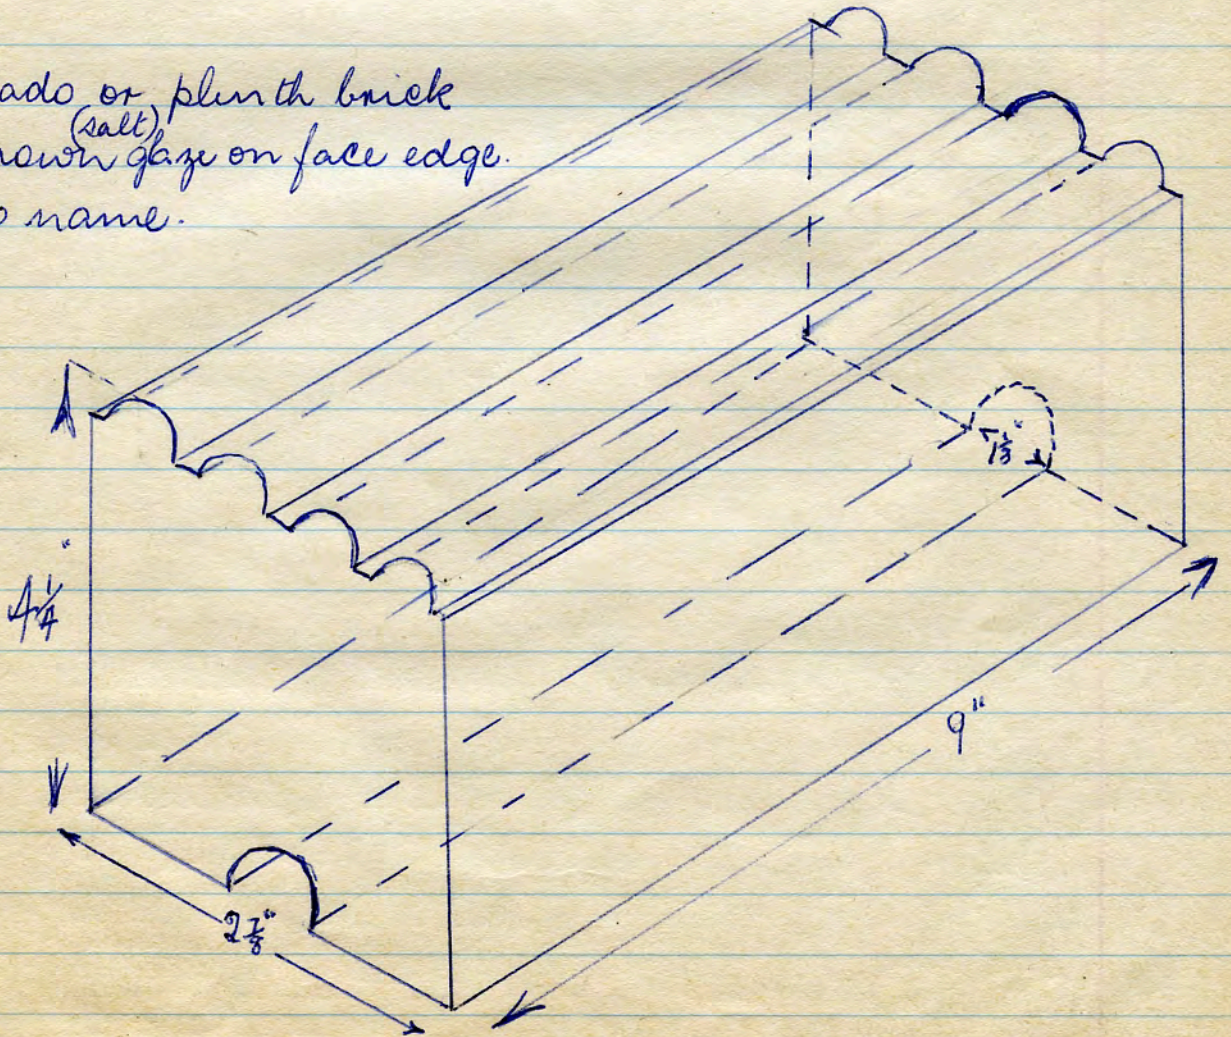 ado or plinth brick
(salt)
rown glaze on face edge.
o name.
4 1/4"
1 1/8"
9"
2 7/8"